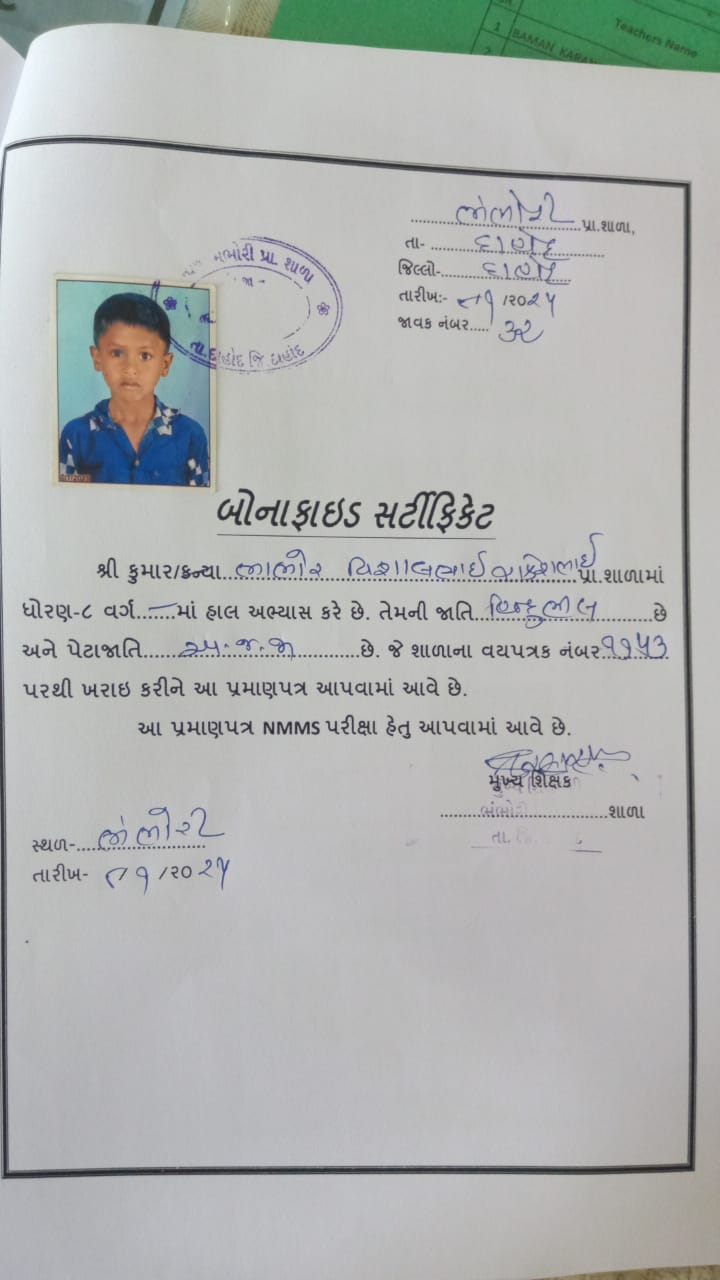 Teachers Name
1 BAMAN KARAN
2
ભંભોરી પ્રા.શાળા,
તા- દાહોદ
જિલ્લો- દાહોદ
તારીખ:- ૮/૧/૨૦૨૫
જાવક નંબર..... ૩૨
ભંભોરી પ્રા. શાળા
તા.દાહોદ જિ.દાહોદ
બોનાફાઇડ સર્ટીફિકેટ
શ્રી કુમાર/કન્યા ભાભોર વિશાલભાઈ રાકેશભાઈ પ્રા.શાળામાં
ધોરણ-૮ વર્ગ.......માં હાલ અભ્યાસ કરે છે. તેમની જાતિ હિન્દુભીલ છે
અને પેટાજાતિ અ.જ.જા છે. જે શાળાના વયપત્રક નંબર ૧૧૫૩
પરથી ખરાઇ કરીને આ પ્રમાણપત્ર આપવામાં આવે છે.
આ પ્રમાણપત્ર NMMS પરીક્ષા હેતુ આપવામાં આવે છે.
મુખ્ય શિક્ષક
ભંભોરી શાળા
તા. જિ.
સ્થળ- ભંભોરી
તારીખ- ૮/૧/૨૦૨૫